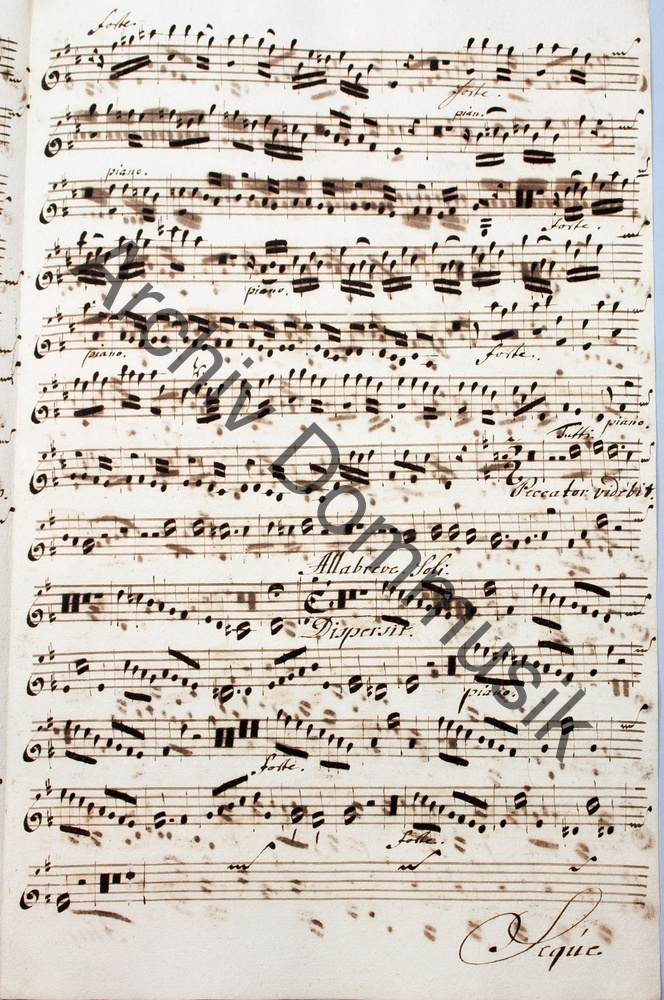 forte.
forte.
pian.
piano.
forte.
piano.
piano.
forte.
piano.
Tutti
Peccator videbit.
Allabreve Soli.
Dispersit.
piano.
forte.
forte.
Seque.
Archiv Dommusik